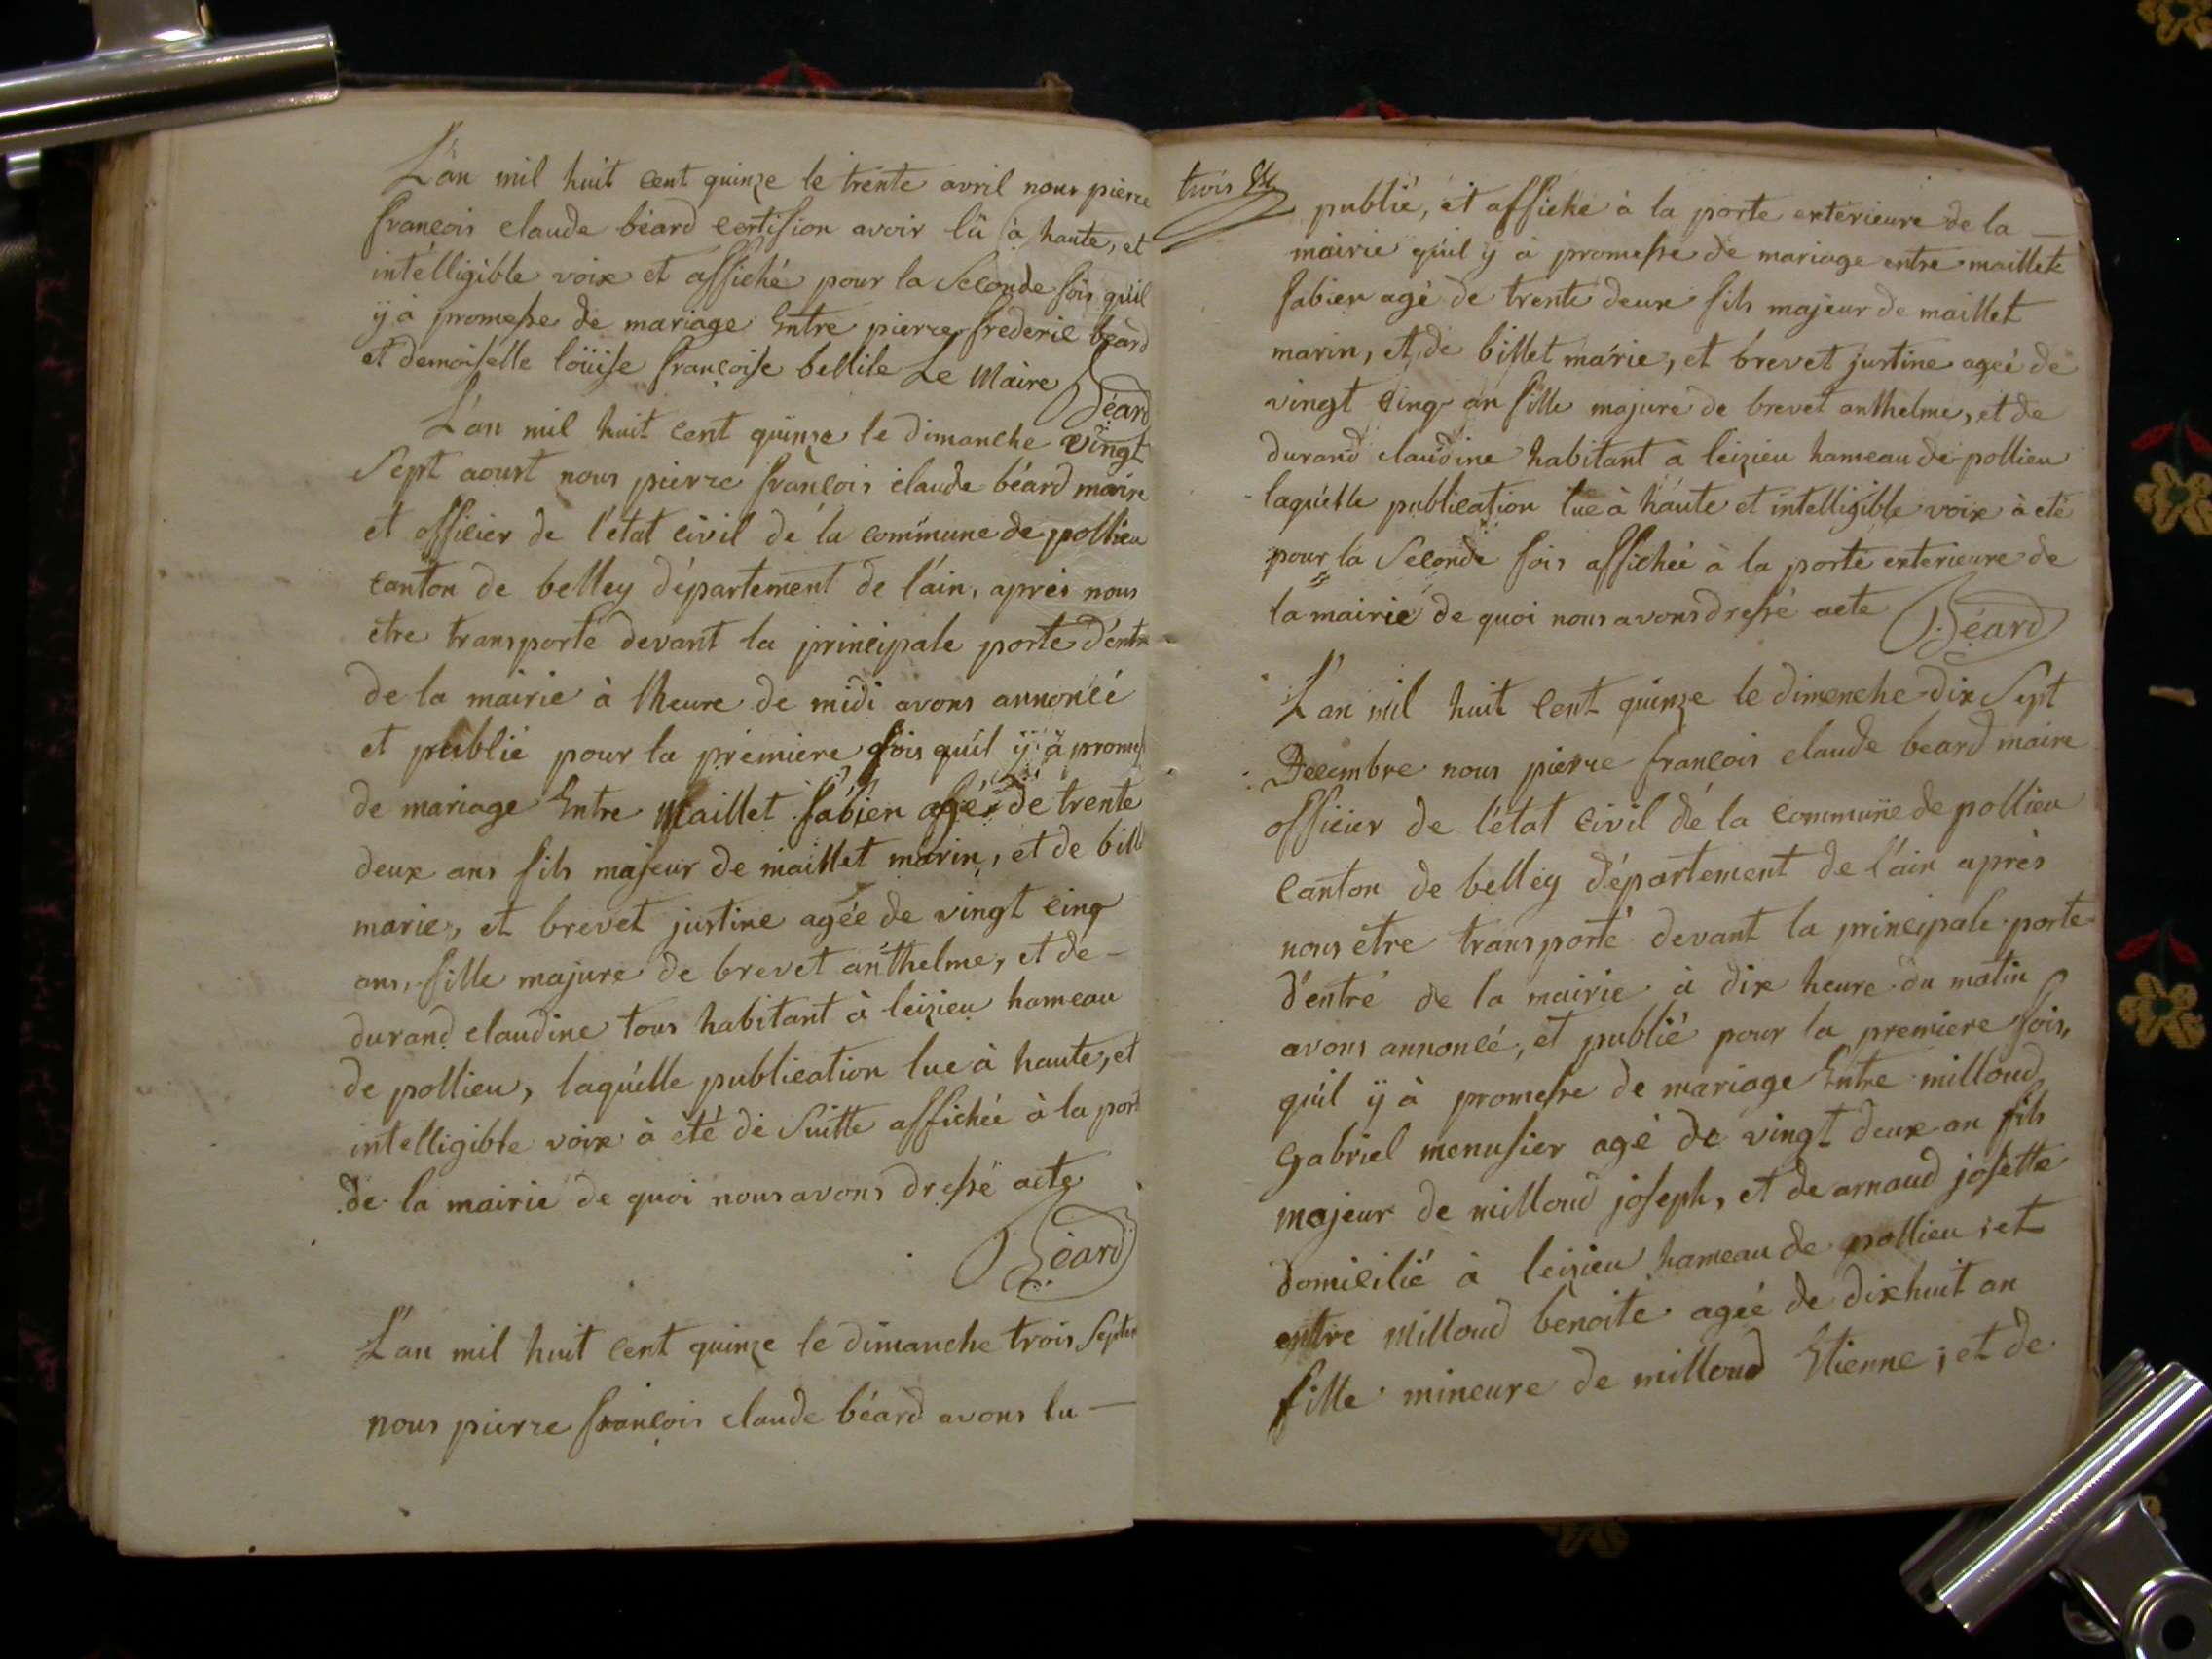 L'an mil huit cent quinze le trente avril nous pierre
françois claude béard certifion avoir lû à haute, et
intélligible voix et affiché pour la seconde fois qu'il
ÿ à promesse de mariage Entre pierre frederic béard
et demoiselle loüise françoise bellile Le Maire Béard
L'an mil huit cent quinze le dimanche vingt
sept aoust nous pierre françois claude béard maire
et officier de l'état civil de la commune de pollieu
canton de belley département de l'ain, après nous
être transporté devant la principale porte d'entré
de la mairie à lheure de midi avons annoncé
et publié pour la premiere fois qu'il ÿ à promess
de mariage Entre Maillet fabien agé de trente
deux ans fils majeur de maillet marin, et de bill
marie, et brevet justine agée de vingt cinq
ans, fille majure de brevet anthelme, et de -
durand claudine tous habitant à leizieu hameau
de pollieu, laqu'elle publication lue à haute, et
intelligible voix à été de suitte affichée à la port
de la mairie de quoi nous avons dressé acte
Béard
L'an mil huit cent quinze le dimanche trois septem
nous pierre françois claude béard avons lu —
trois
publié, et affiché à la porte extérieure de la —
mairie qu'il ÿ à promesse de mariage entre maillet
fabien agé de trente deux fils majeur de maillet
marin, et de billet marie, et brevet justine ageé de
vingt cinq an fille majure de brevet anthelme, et de
durand claudine habitant a leizieu hameau de pollieu
laqu'elle publication lue à haute et intelligible voix à eté
pour la seconde fois affichée à la porte exterieure de
la mairie de quoi nous avons dressé acte Béard
L'an mil huit cent quinze le dimenche dix sept
Decembre nous pierre françois claude beard maire
officier de l'état civil de la commune de pollieu
canton de belley département de l'ain après
nous être transporté devant la principale porte
d'entré de la mairie à dix heure du matin
avons annoncé, et publié pour la premiere fois,
qu'il ÿ à promesse de mariage Entre milloud
Gabriel menusier agé de vingt deux an fils
majeur de milloud joseph, et de arnaud josette
domicilié à leizieu hameau de pollieu, et
entre Milloud benoite ageé de dixhuit an
fille mineure de milloud Etienne, et de